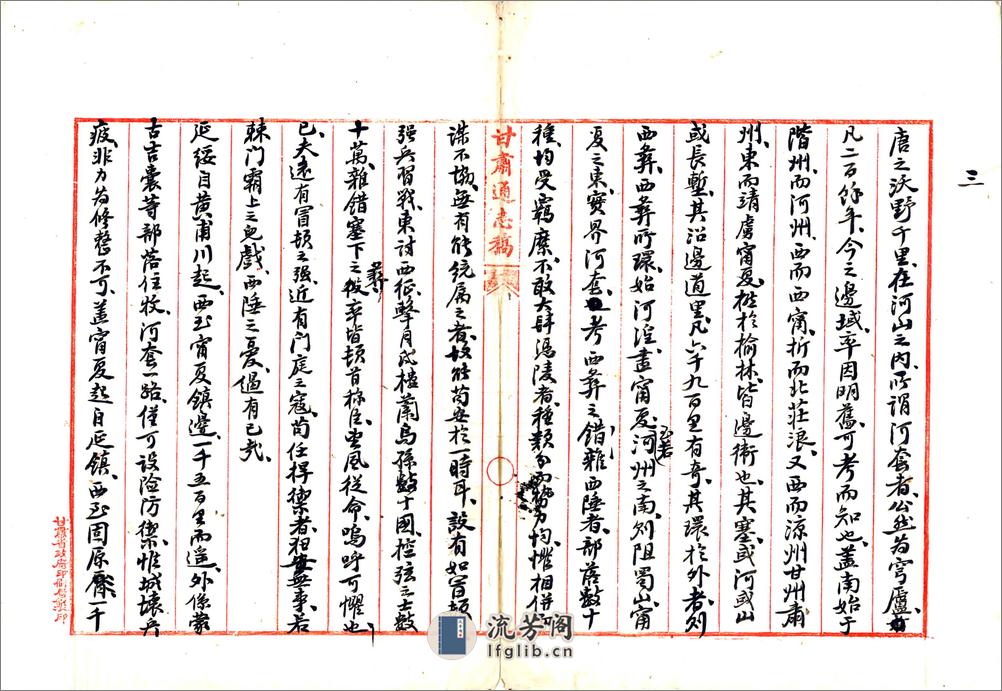 三
唐之沃野千里在河山之内所謂河套者公然为穹廬者
凡二百餘年今之邊域率因明舊可考而知也蓋南始于
階州而河州西而西甯折而北莊浪又西而涼州甘州肅
州東而靖虜甯夏推於榆林皆邊衛也其塞或河或山
或長塹其沿邊道里凡六千九百里有奇其環於外者則
西彝西彝所環始河湟畫甯夏至若河州之南則阻蜀山甯
夏之東實界河套考西彝之錯雜西陲者部落數十
種均受羈縻不敢大肆憑陵者種類分而勢力均惟相併
謀不協無有能統属之者故能苟安於一時耳設有如冒頓
强兵習戰東討西征擊月氏樓蘭烏孫數十國控弦之士數
十萬雜錯塞下之彝率皆頓首称臣望風從命嗚呼可懼也
已夫遠有冒頓之强近有門庭之寇苟任捍禦者相安無事若
棘門霸上之兒戲西陲之憂過有已哉
延綏自黄甫川起西至甯夏鎮邊一千五百里而遥外係蒙
古吉囊等部落住牧河套一路僅可设险防禦惟城壊兵
疲非力为修整不可蓋甯夏起自延鎮西至固原縻一千
甘肅通志稿
甘肅省政府印刷局製印
流芳阁
lfglib.cn